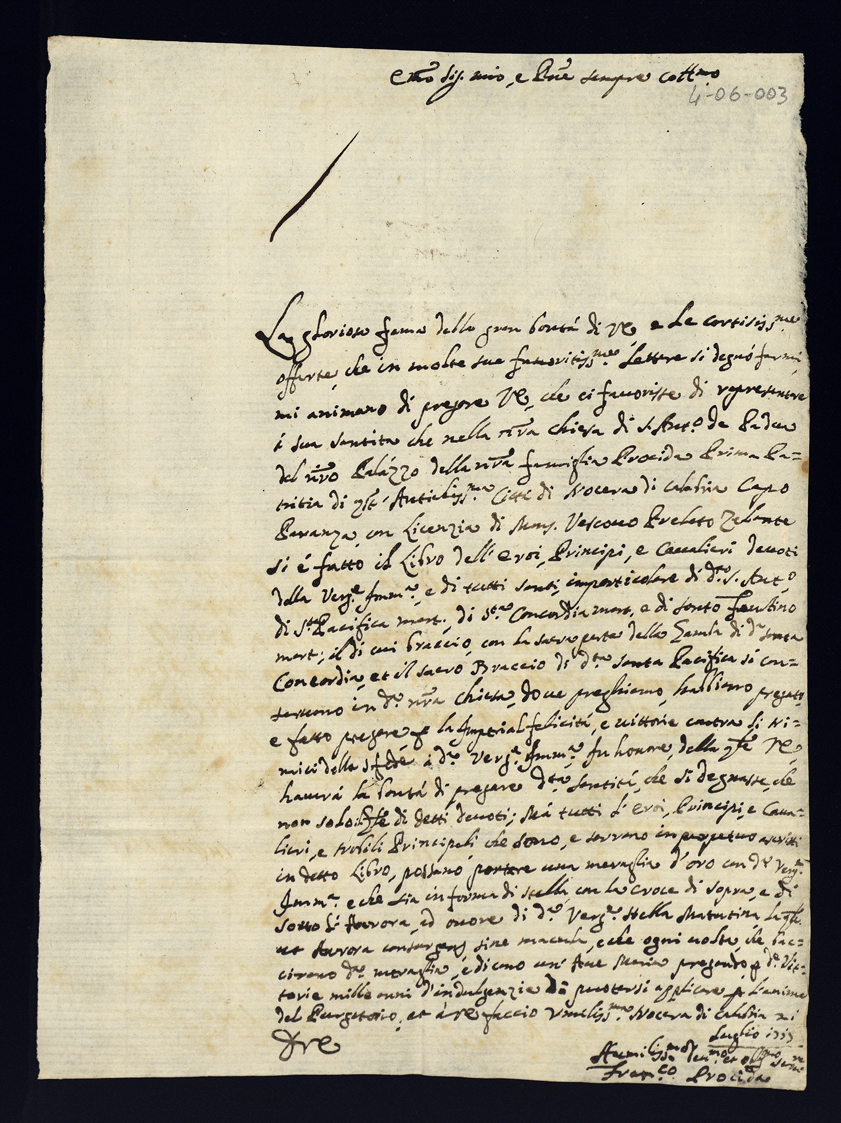 Sig. mio, e Pñe sempre Coll.mo
4-06-003
La gloriosa fama della gran bontá di VE, e Le cortisiss.me
offerte, che in molte sue fauoritiss.me Lettere si degnó farmi,
mi animano di pregare VE, che ci fauorisse di representare
á sua santita che nella nr̃a Chiesa di S. Ant.o de Padua
del nr̃o Palazzo della nr̃a famiglia Procida Prima Pa=
tritia di Antichiss.ma Cittá di Nocera di Calabria Capo
Paranza, con Licenzia di Mons. Vescouo Prelato Zelante
si é fatto il Libro dell' Eroi, Principi, e Caualieri deuoti
della Verg.e Imm.a, e di tutti santi, imparticolare di d.o S. Ant.o
di S.ta Pacifica mart., di S.ta Concordia mart, e di santo Faustino
mart; il di cui braccio, con la sacra parte della di d.a santa
Concordia, et il sacro Braccio di d.ta santa Pacifica si con=
seruono in d.a nr̃a Chiesa, doue preghiamo, habbiamo pregato,
e fatto pregare la Imperial felicitá, e uittorie contra li Ni=
mici della S. fede á d.a Verg.e Imm.a In honore della VE
hauerá la bontá di pregare d.ta Santitá, che si degnasse, che
non solo di detti deuoti; Má tutti l' Eroi, Principi, e Caua=
lieri, e Nobili Principali che sono, e serrano in perpetuo ascritti
in detto Libro, possano portare una meraglia d'oro con d.a Verg.e
Imm.a e che sia in forma di stella, con la croce di sopra, e di
sotto l' Aurora, ad onore di d.a Verg.e Stella Matutina,
ut Aurora consurgens sine macula, e che ogni uolta, che bac=
cirano d.a meraglia, e dicono un' Aue Maria pregando d.e Vit=
torie mille anni d'indulgenzie Dá puotersi applicare l'anime
del Purgatorio; et á VE faccio Umiliss.ma Nocera di Calabria
Luglio
DVE
Humiliss.mo
Fran.co Procida